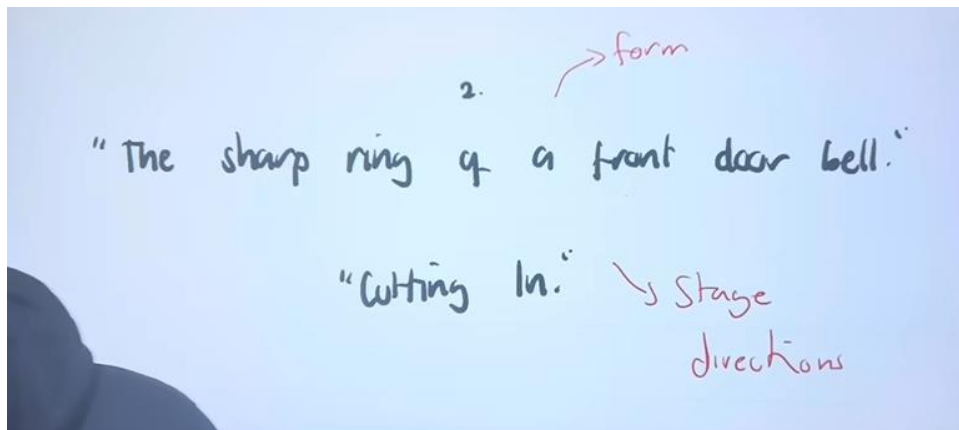 form
2.
"The sharp ring of a front door bell."
"Cutting In." Stage
directions